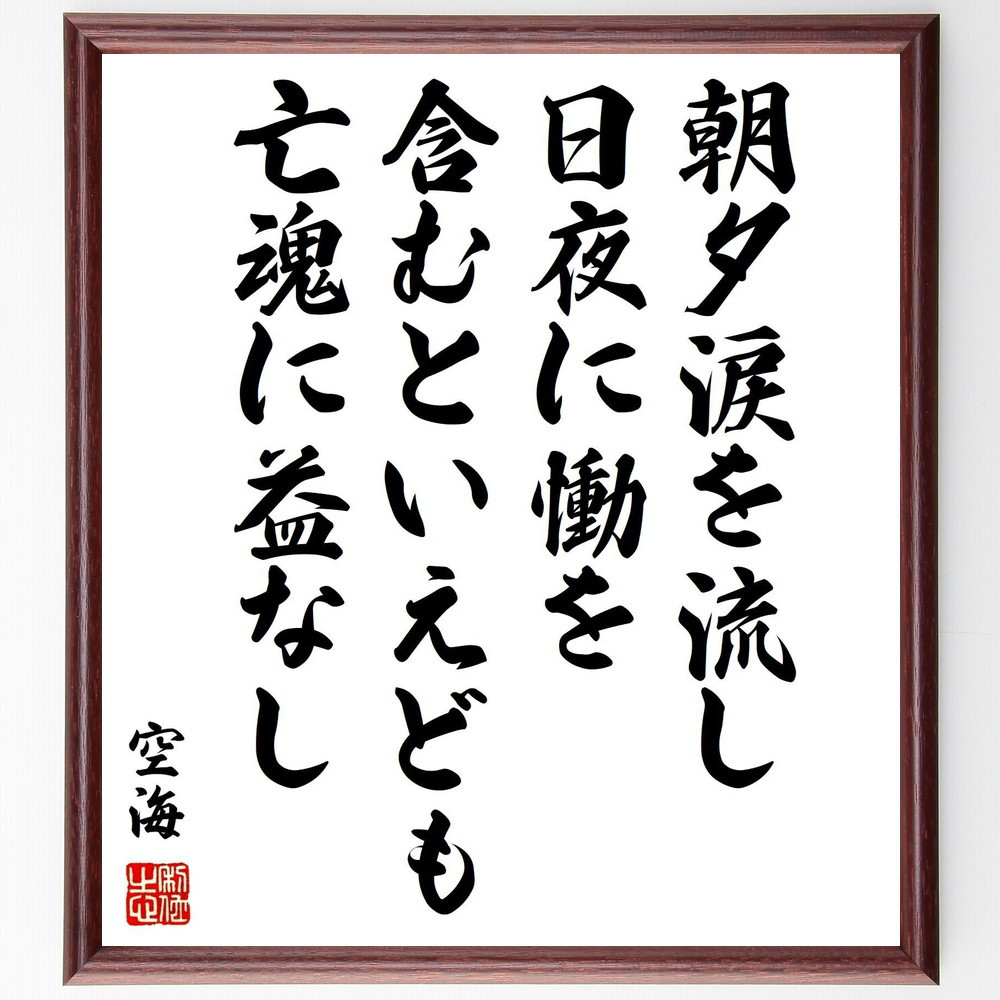 朝夕涙を流し
日夜に慟を
含むといえども
亡魂に益なし
空海